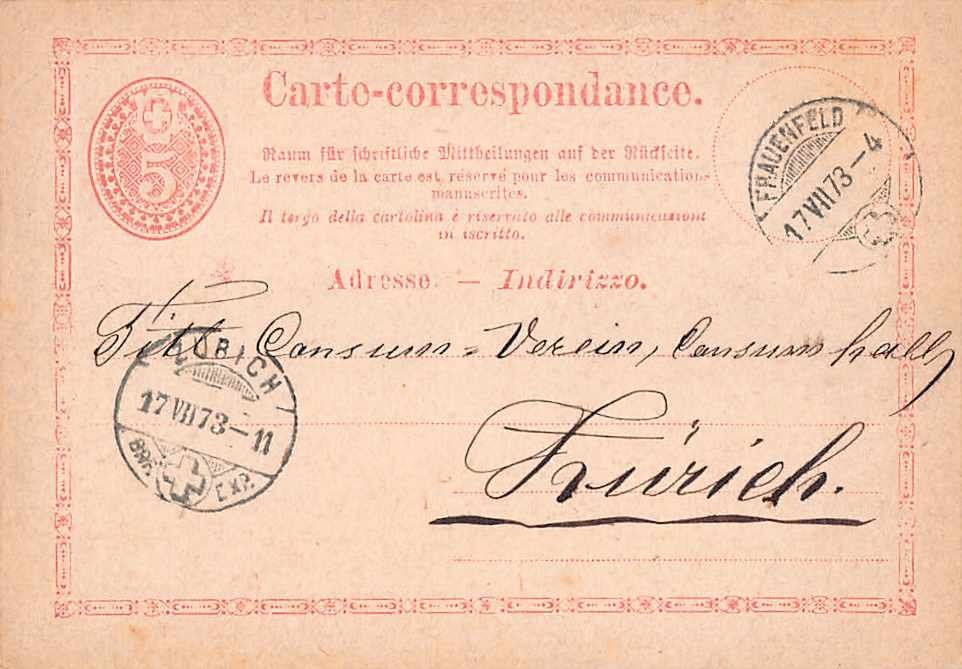 Carte-correspondance.
5
Raum für schriftliche Mittheilungen auf der Rückseite.
Le revers de la carte est réservé pour les communications
manuscrites.
Il tergo della cartolina è riservato alle communicazioni
in iscritto.
FRAUENFELD
17 VII 73–4
Adresse. — Indirizzo.
Titl. Consum-Verein, Consumhalle,
Zürich.
ZÜRICH
17 VII 73–11
BRF. EXP.